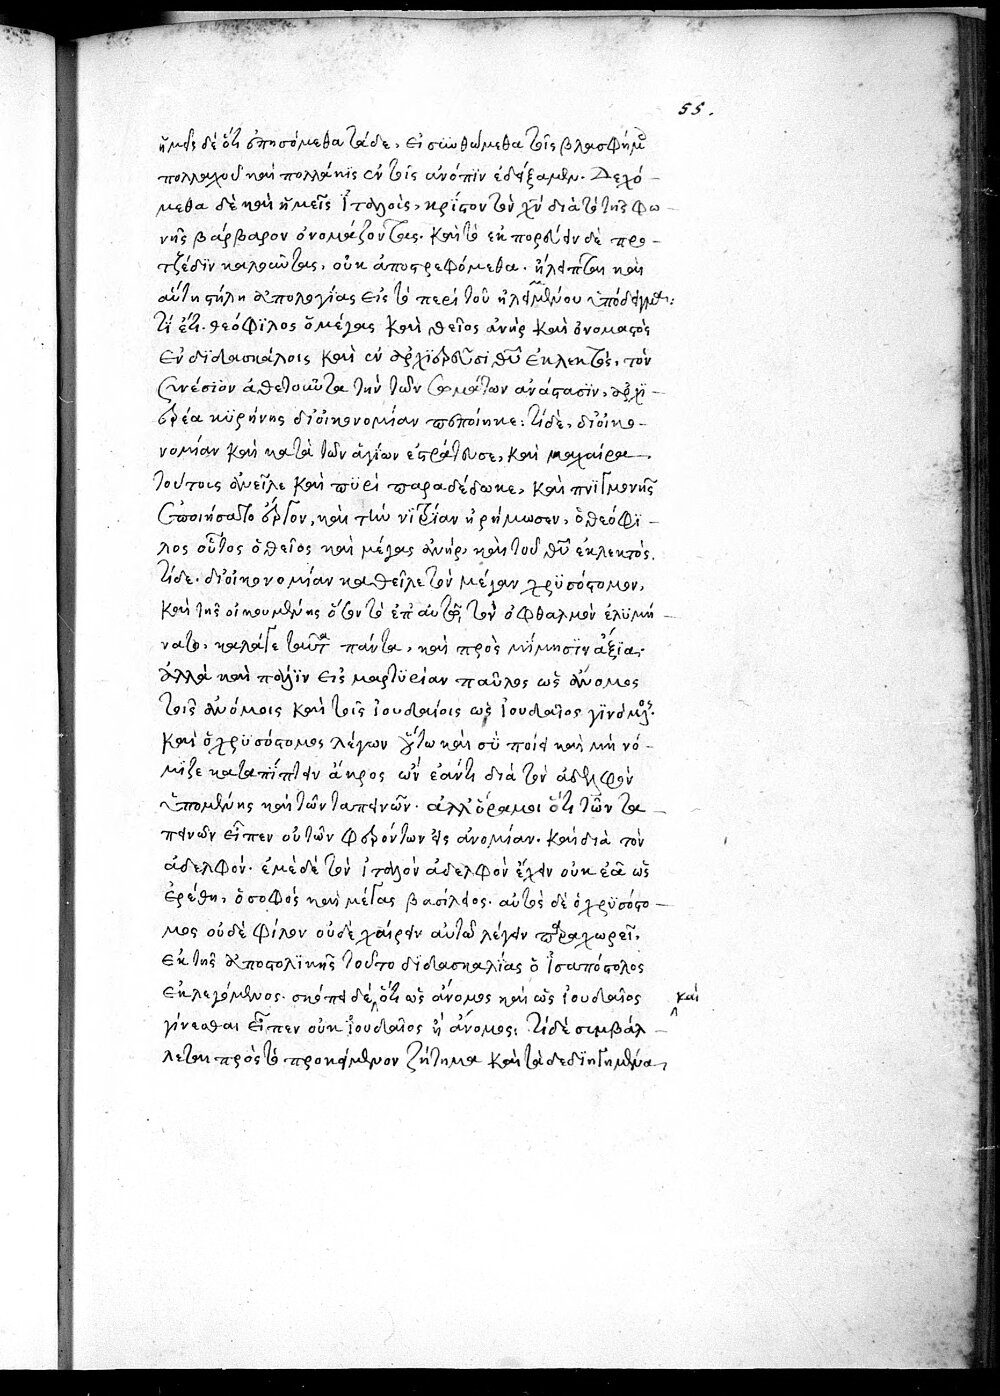 55.
ἡμεῖς δὲ ὅτι ἑπησόμεθα τάδε, εἰ συνωθώμεθα τοῖς βλασφήμ
πολλαχοῦ καὶ πολλάκις ἐν τοῖς ἀνόπιν ἐδείξαμεν. Δεχό –
μεθα δὲ καὶ ἡμεῖς Ἰταλοὶς, κρίστον τὸν χν διὰ τὸ τῆς φω –
νῆς βάρβαρον ὀνομάζοντας. καὶ τὸ ἐκ πορεύειν δὲ προ –
τζέδιν καλοῦντας, οὐκ ἀποστρεφόμεθα.
αὕτη στήλη ἀπολογίας εἰς τὸ περὶ τοῦ
τί ἔτι. θεόφιλος ὁ μέγας καὶ θεῖος ἀνὴρ καὶ ὀνομαστὸς
ἐν διδασκάλοις καὶ ἐν ἀρχιερεῦσι θῦ ἐκλεκτὸς, τὸν
Συνέσιον ἀθετοῦντα τὴν τῶν σωμάτων ἀνάστασιν, ἀρχι –
ερέα κυρήνης δι οἰκονομίαν πεποίηκε: τί δὲ, δι οἰκο –
νομίαν καὶ κατὰ τῶν ἁγίων ἐστράτευσε, καὶ μαχαίρα
τούτοις ἀνεῖλε καὶ πυρὶ παραδέδωκε, καὶ πνιγμονῆς
ἐποιήσατο ἔργον, καὶ τὴν νιτρίαν ἠρήμωσεν, ὁ θεόφι –
λος οὗτος ὁ θεῖος καὶ μέγας ἀνὴρ, καὶ τοῦ θῦ ἐκλεκτὸς.
τί δε. δι οἰκονομίαν καθεῖλε τὸν μέγαν χρυσόστομον,
καὶ τῆς οἰκουμένης ὅσον τὸ ἐπ αὐτῷ, τὸν ὀφθαλμὸν ἐλυμή
νατο, κατάγε ταῦτα πάντα, καὶ πρὸς μίμησιν ἄξια.
ἀλλὰ καὶ πάλιν εἰς μαρτυρίαν παῦλος ὡς ἄνομος
τοῖς ἀνόμοις καὶ τοῖς ἰουδαίοις ὡς ἰουδαῖος γινόμενος.
καὶ ὁ χρυσόστομος λέγων οὕτω καὶ σὺ ποίει καὶ μὴ νό –
μιζε καταπίπτειν ἄκρος ὢν ἐάντι διὰ τὸν ἀδελφὸν
ὑπομένης καὶ τῶν ταπεινῶν. ἀλλ ὅρα μοι ὅτι τῶν τα –
πεινῶν εἶπεν οὐ τῶν φερόντων εἰς ἀνομίαν. καὶ διὰ τὸν
ἀδελφόν. ἐμὲ δὲ τὸν ἰταλὸν ἀδελφὸν ἔχειν οὐκ ἐᾶ ὡς
ἐρέθη, ὁ σοφὸς καὶ μέγας βασίλειος. αὐτὸς δὲ ὁ χρυσόστο –
μος οὐδὲ φίλον οὐδὲ χαίρειν αὐτῶ λέγειν παραχωρεῖ.
ἐκ τῆς ἀποστολικῆς τοῦτο διδασκαλίας ὁ ἰσαπόστολος
ἐκλεγόμενος. σκόπει δὲ, ὅτι ὡς ἄνομος καὶ ὡς ἰουδαῖος
καὶ
γίνεσθαι εἶπεν οὐκ ἰουδαῖος ἢ ἄνομος: τί δὲ συμβάλ –
λεται πρὸς τὸ προκείμενον ζήτημα καὶ τὰ δεδιητημένα,